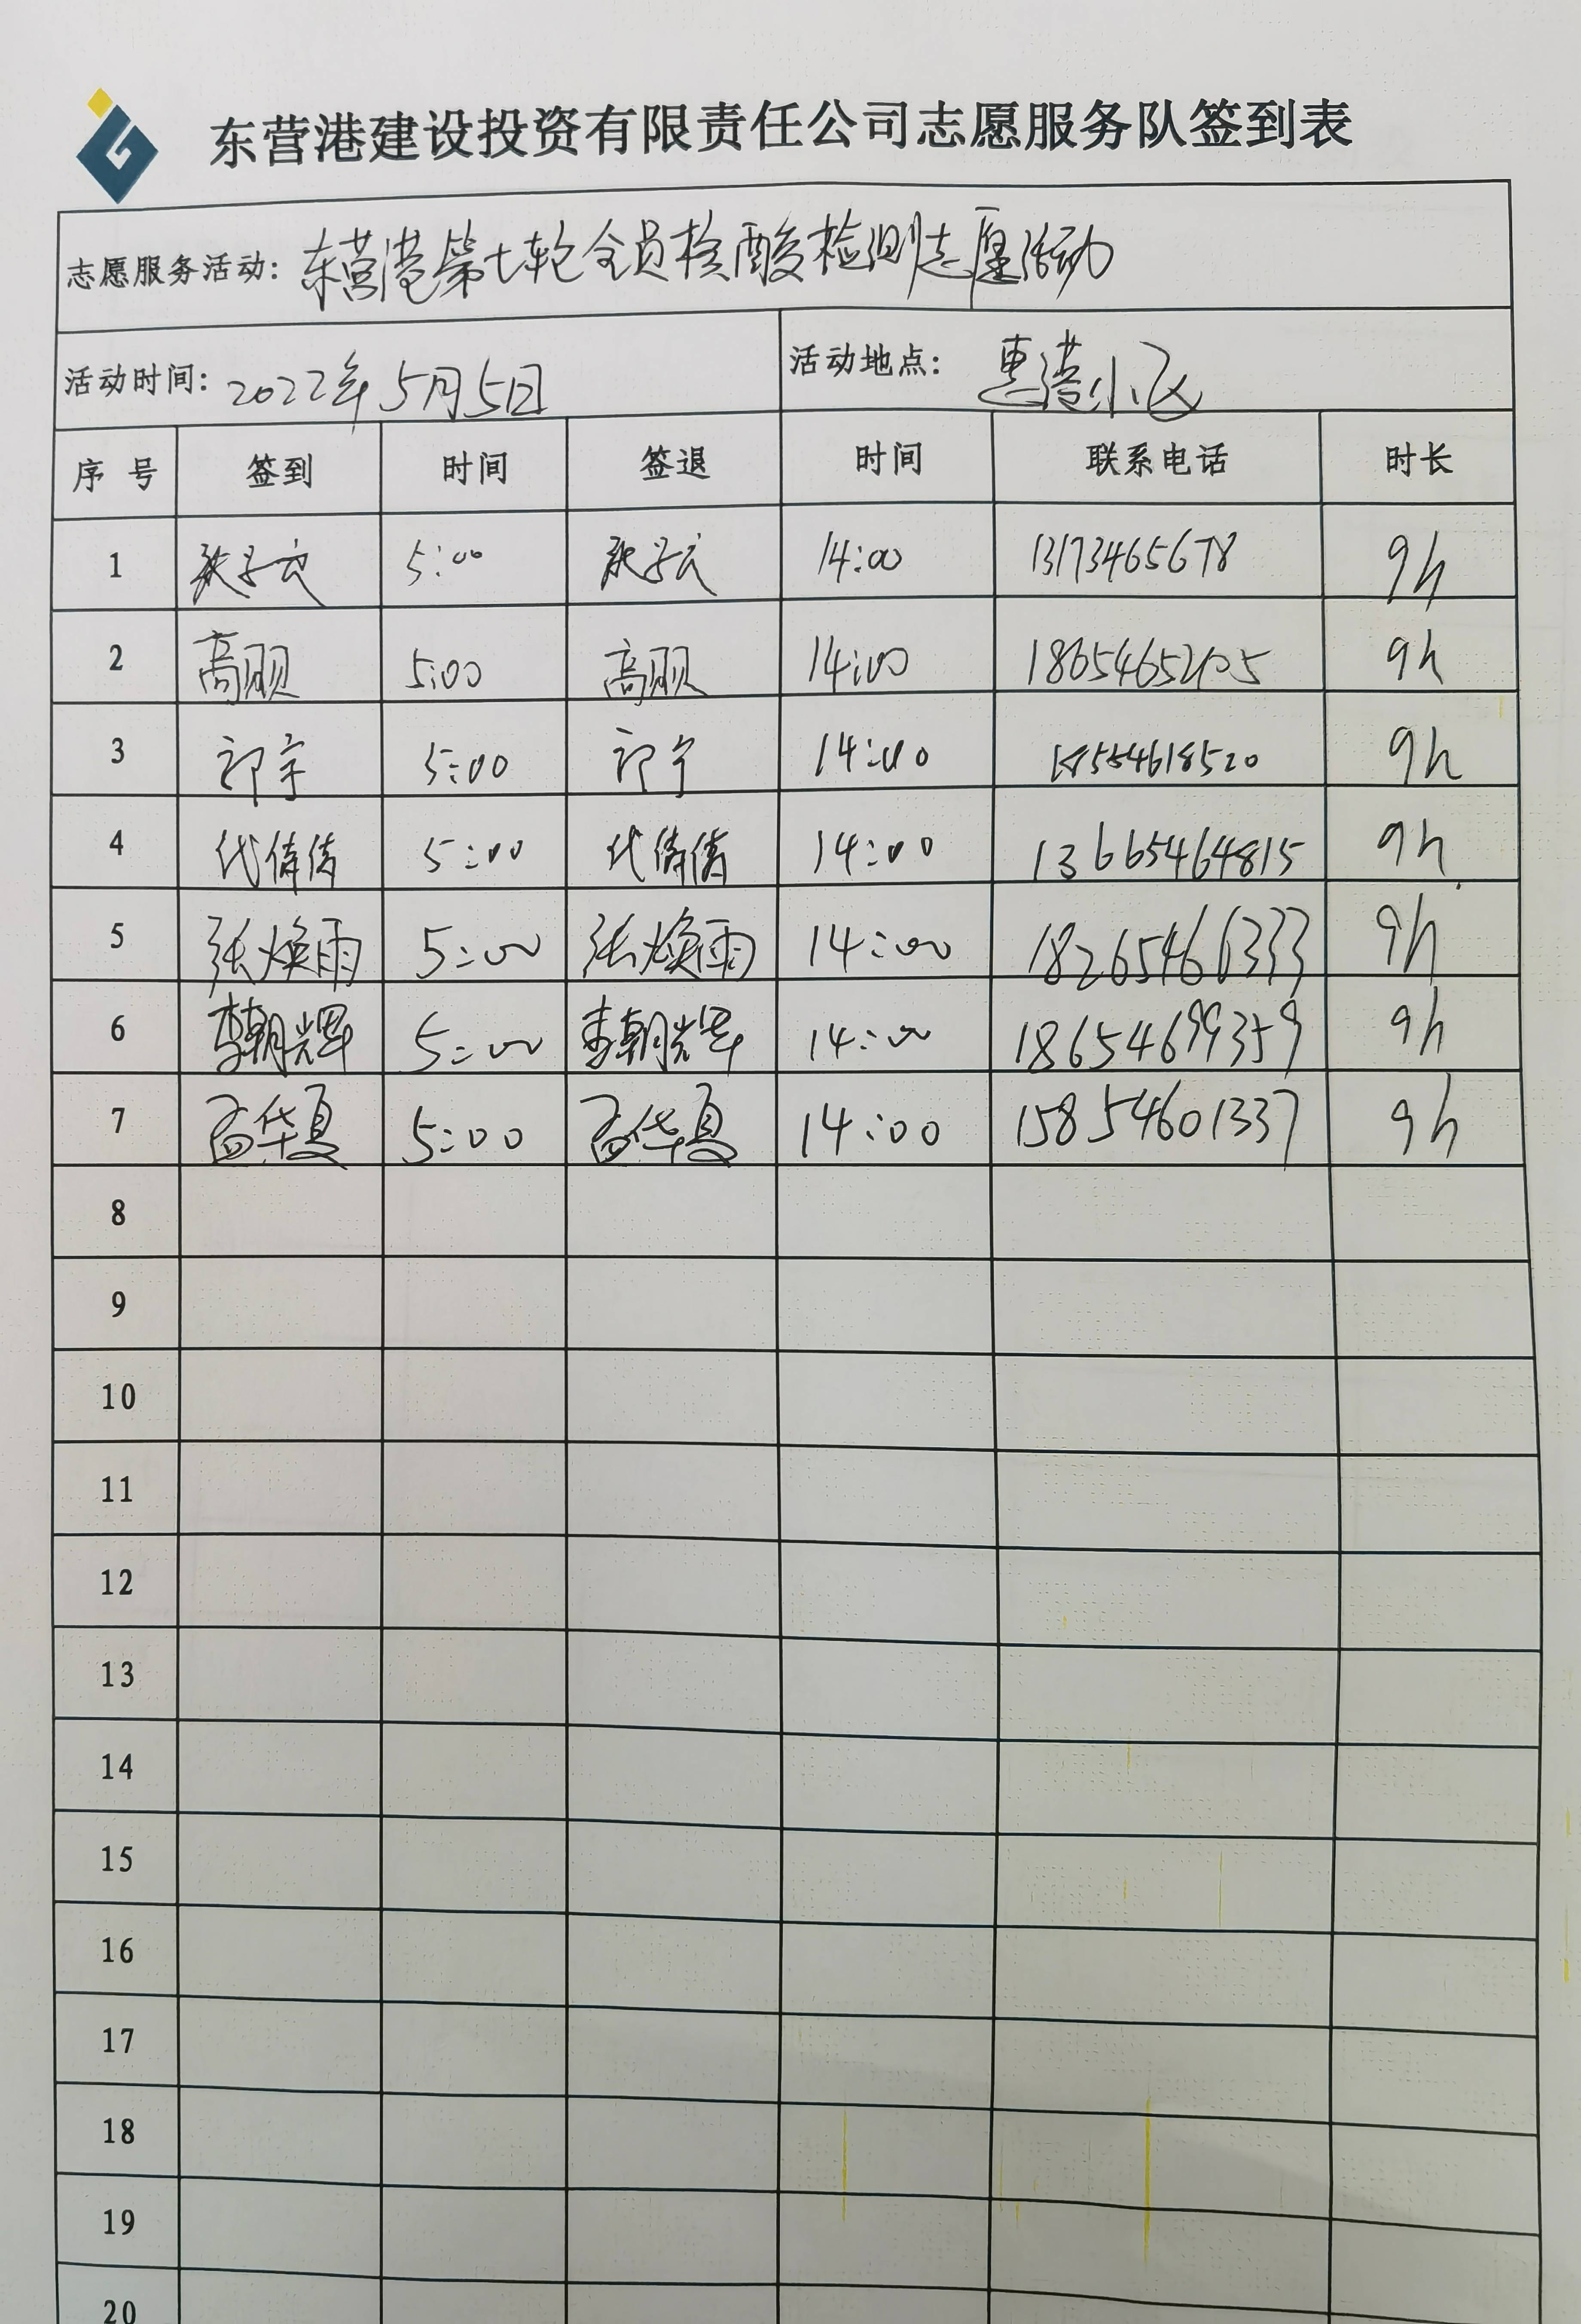 东营港建设投资有限责任公司志愿服务队签到表
志愿服务活动: 东营港第七轮全员核酸检测志愿活动
活动时间: 2022年5月5日 活动地点: 惠港小区
序号 签到 时间 签退 时间 联系电话 时长
1 5:00 14:00 13173465678 9h
2 高丽 5:00 高丽 14:00 9h
3 5:00 14:00 9h
4 代倩倩 5:00 代倩倩 14:00 13665464815 9h
5 张焕雨 5:00 张焕雨 14:00 18265466333 9h
6 李朝辉 5:00 李朝辉 14:00 18654699359 9h
7 孟华夏 5:00 孟华夏 14:00 15854601337 9h
8
9
10
11
12
13
14
15
16
17
18
19
20